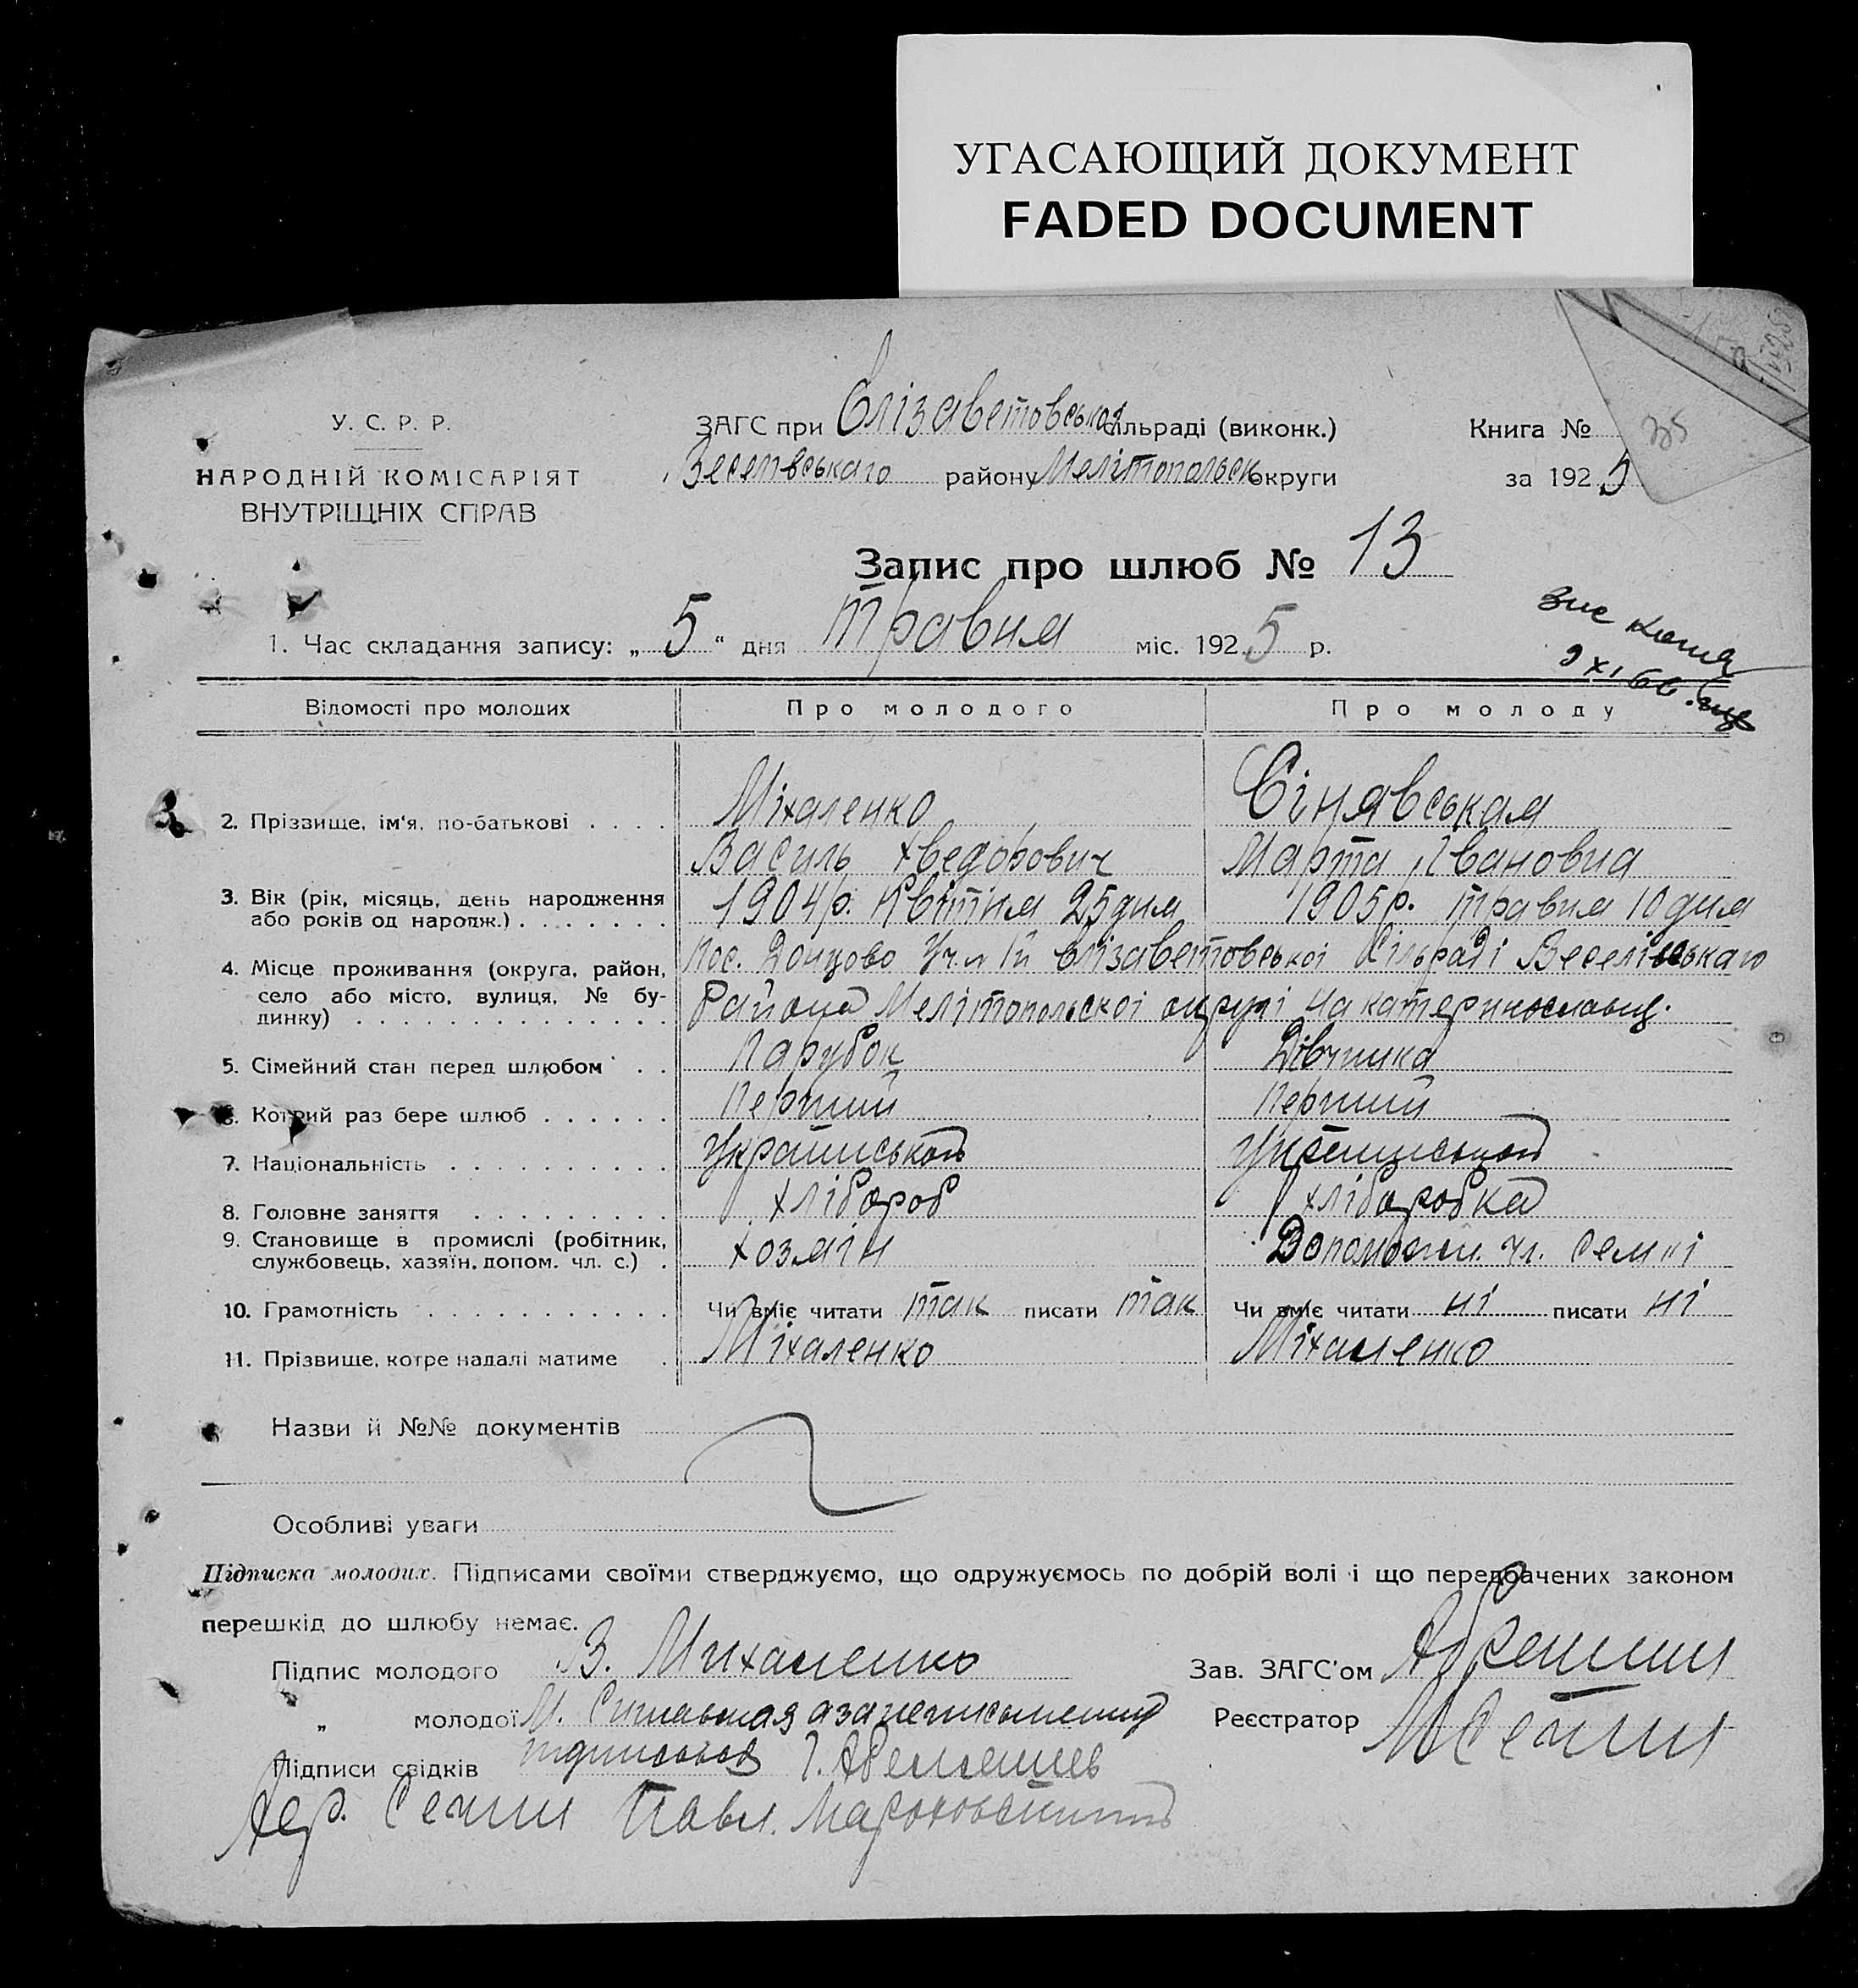 УГАСАЮЩИЙ ДОКУМЕНТ
FADED DOCUMENT
У. С. Р. Р.
НАРОДНІЙ КОМІСАРІЯТ
ВНУТРІШНІХ СПРАВ
ЗАГС при Єлізаветовської сільраді (виконк.)
Веселівськаго району Мелітопольск округи
Книга №
за 1925
335
Запис про шлюб № 13
1. Час складання запису: „5“ дня Травня міс. 1925 р.
Відомості про молодих Про молодого Про молоду
2. Прізвище, ім'я, по-батькові Міхаленко Сінявськая
Василь Хведорович Марта Івановна
3. Вік (рік, місяць, день народження або років од народж.) 1904р. Квітня 25 дня 1905р. травня 10 дня
4. Місце проживання (округа, район, село або місто, вулиця, № будинку) Пос. Донцово Єлізаветовської Сільраді Веселівськаго
Района Мелітопольскої округі на катеринославщ.
5. Сімейний стан перед шлюбом Парубок Дівчинка
6. Котрий раз бере шлюб Перший Перший
7. Національність Українськой Українськой
8. Головне заняття хлібороб хліборобка
9. Становище в промислі (робітник, службовець, хазяїн, допом. чл. с.) хозяін Допоможн. чл. семьі
10. Грамотність Чи вміє читати так писати так Чи вміє читати ні писати ні
11. Прізвище, котре надалі матиме Міхаленко Міхаленко
Назви й №№ документів
Особливі уваги
Підписка молодих. Підписами своїми стверджуємо, що одружуємось по добрій волі і що передбачених законом
перешкід до шлюбу немає.
Підпис молодого В. Михаленко Зав. ЗАГС'ом
„ молодої М. Синявская а за неписьменну Реєстратор
Підписи свідків